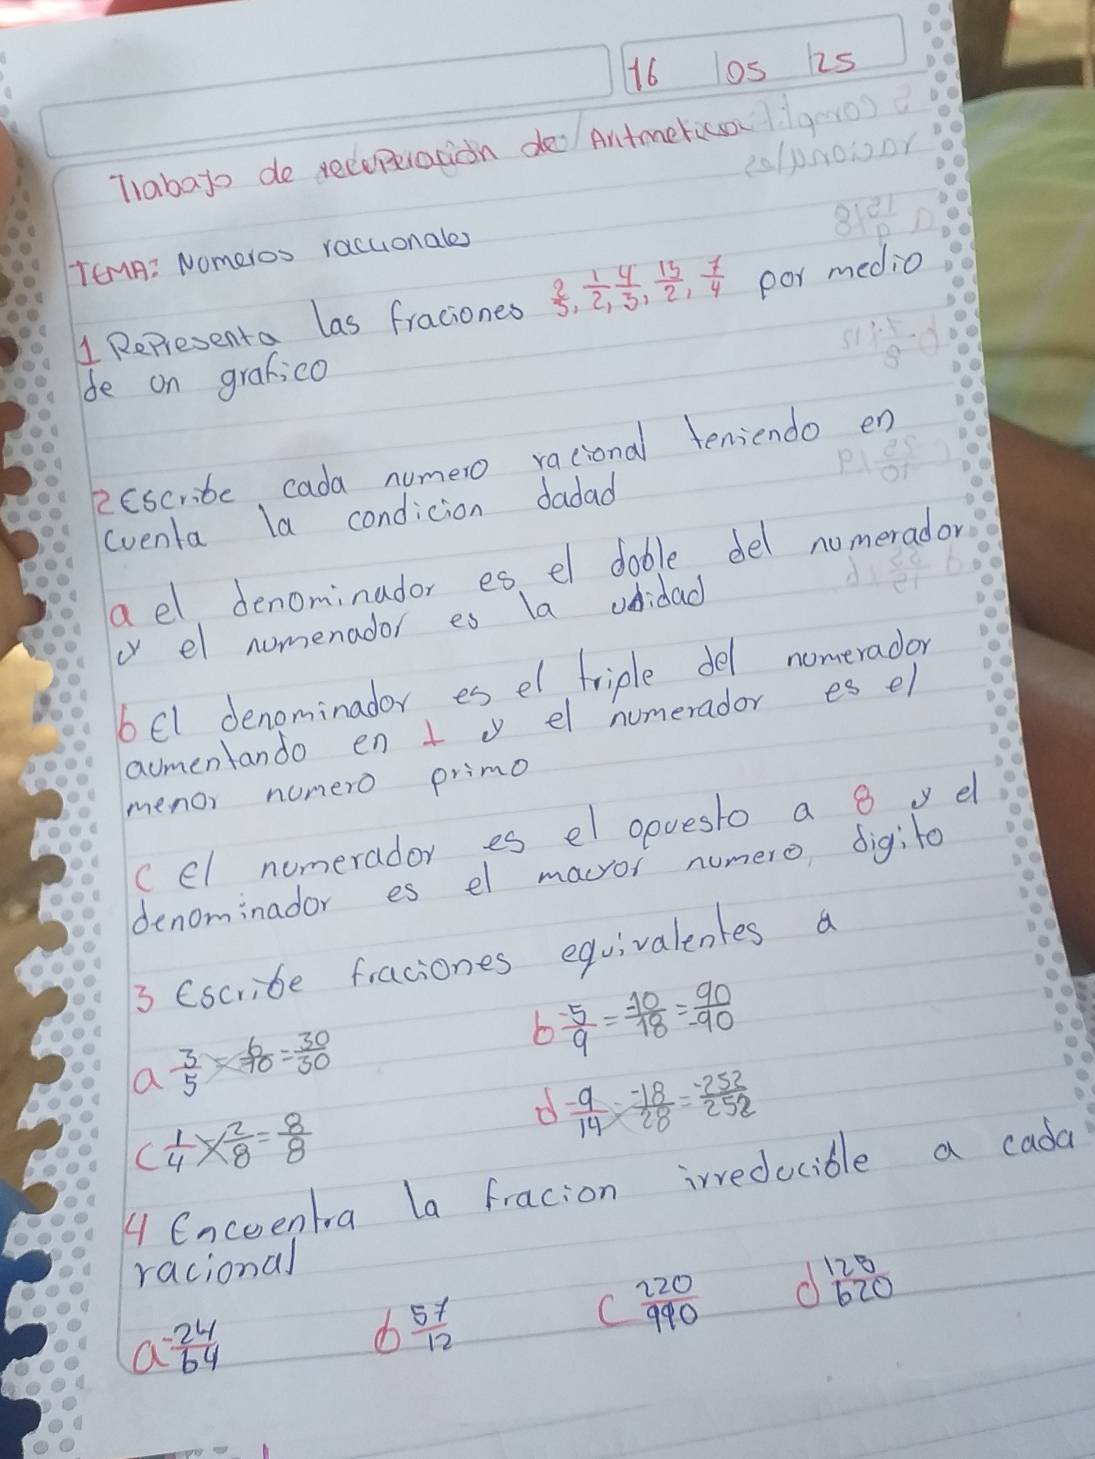 16 05 25
Trabajo de recuperación de Aritmetica
TEMA: Nomeros raccionales
1 Representa las fraciones 2/5, 1/2, 4/3, 15/2, 7/4 por medio
de un grafico
2 Escribe cada numero racional teniendo en
cuenta la condicion dadad
a el denominador es el doble del numerador
y el numenador es la unidad
b El denominador es el triple del numerador
aumentando en 1 y el numerador es el
menor numero primo
c El numerador es el opuesto a 8 y el
denominador es el mayor numero, digito
3 Escribe fraciones equivalentes a
a 3/5 = 6/10 = 30/30 b -5/9 = -10/18 = 90/-90
c 1/4 × 2/8 = 8/8 d -9/14 × -18/28 = -252/252
4 Encuentra la fracion irreducible a cada
racional
a -24/64 b 57/12 c 220/990 d 128/620